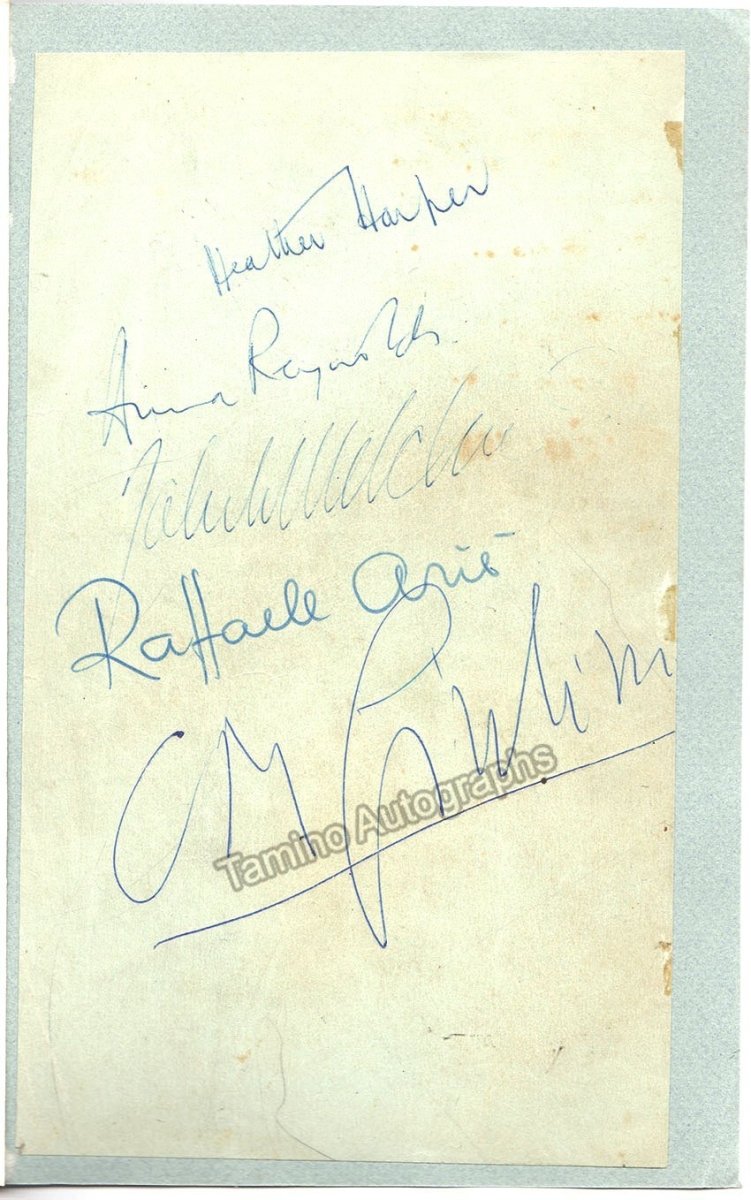 Heather Harper
Anna Reynolds
Raffaele Arié
CM Giulini
Tamino Autographs